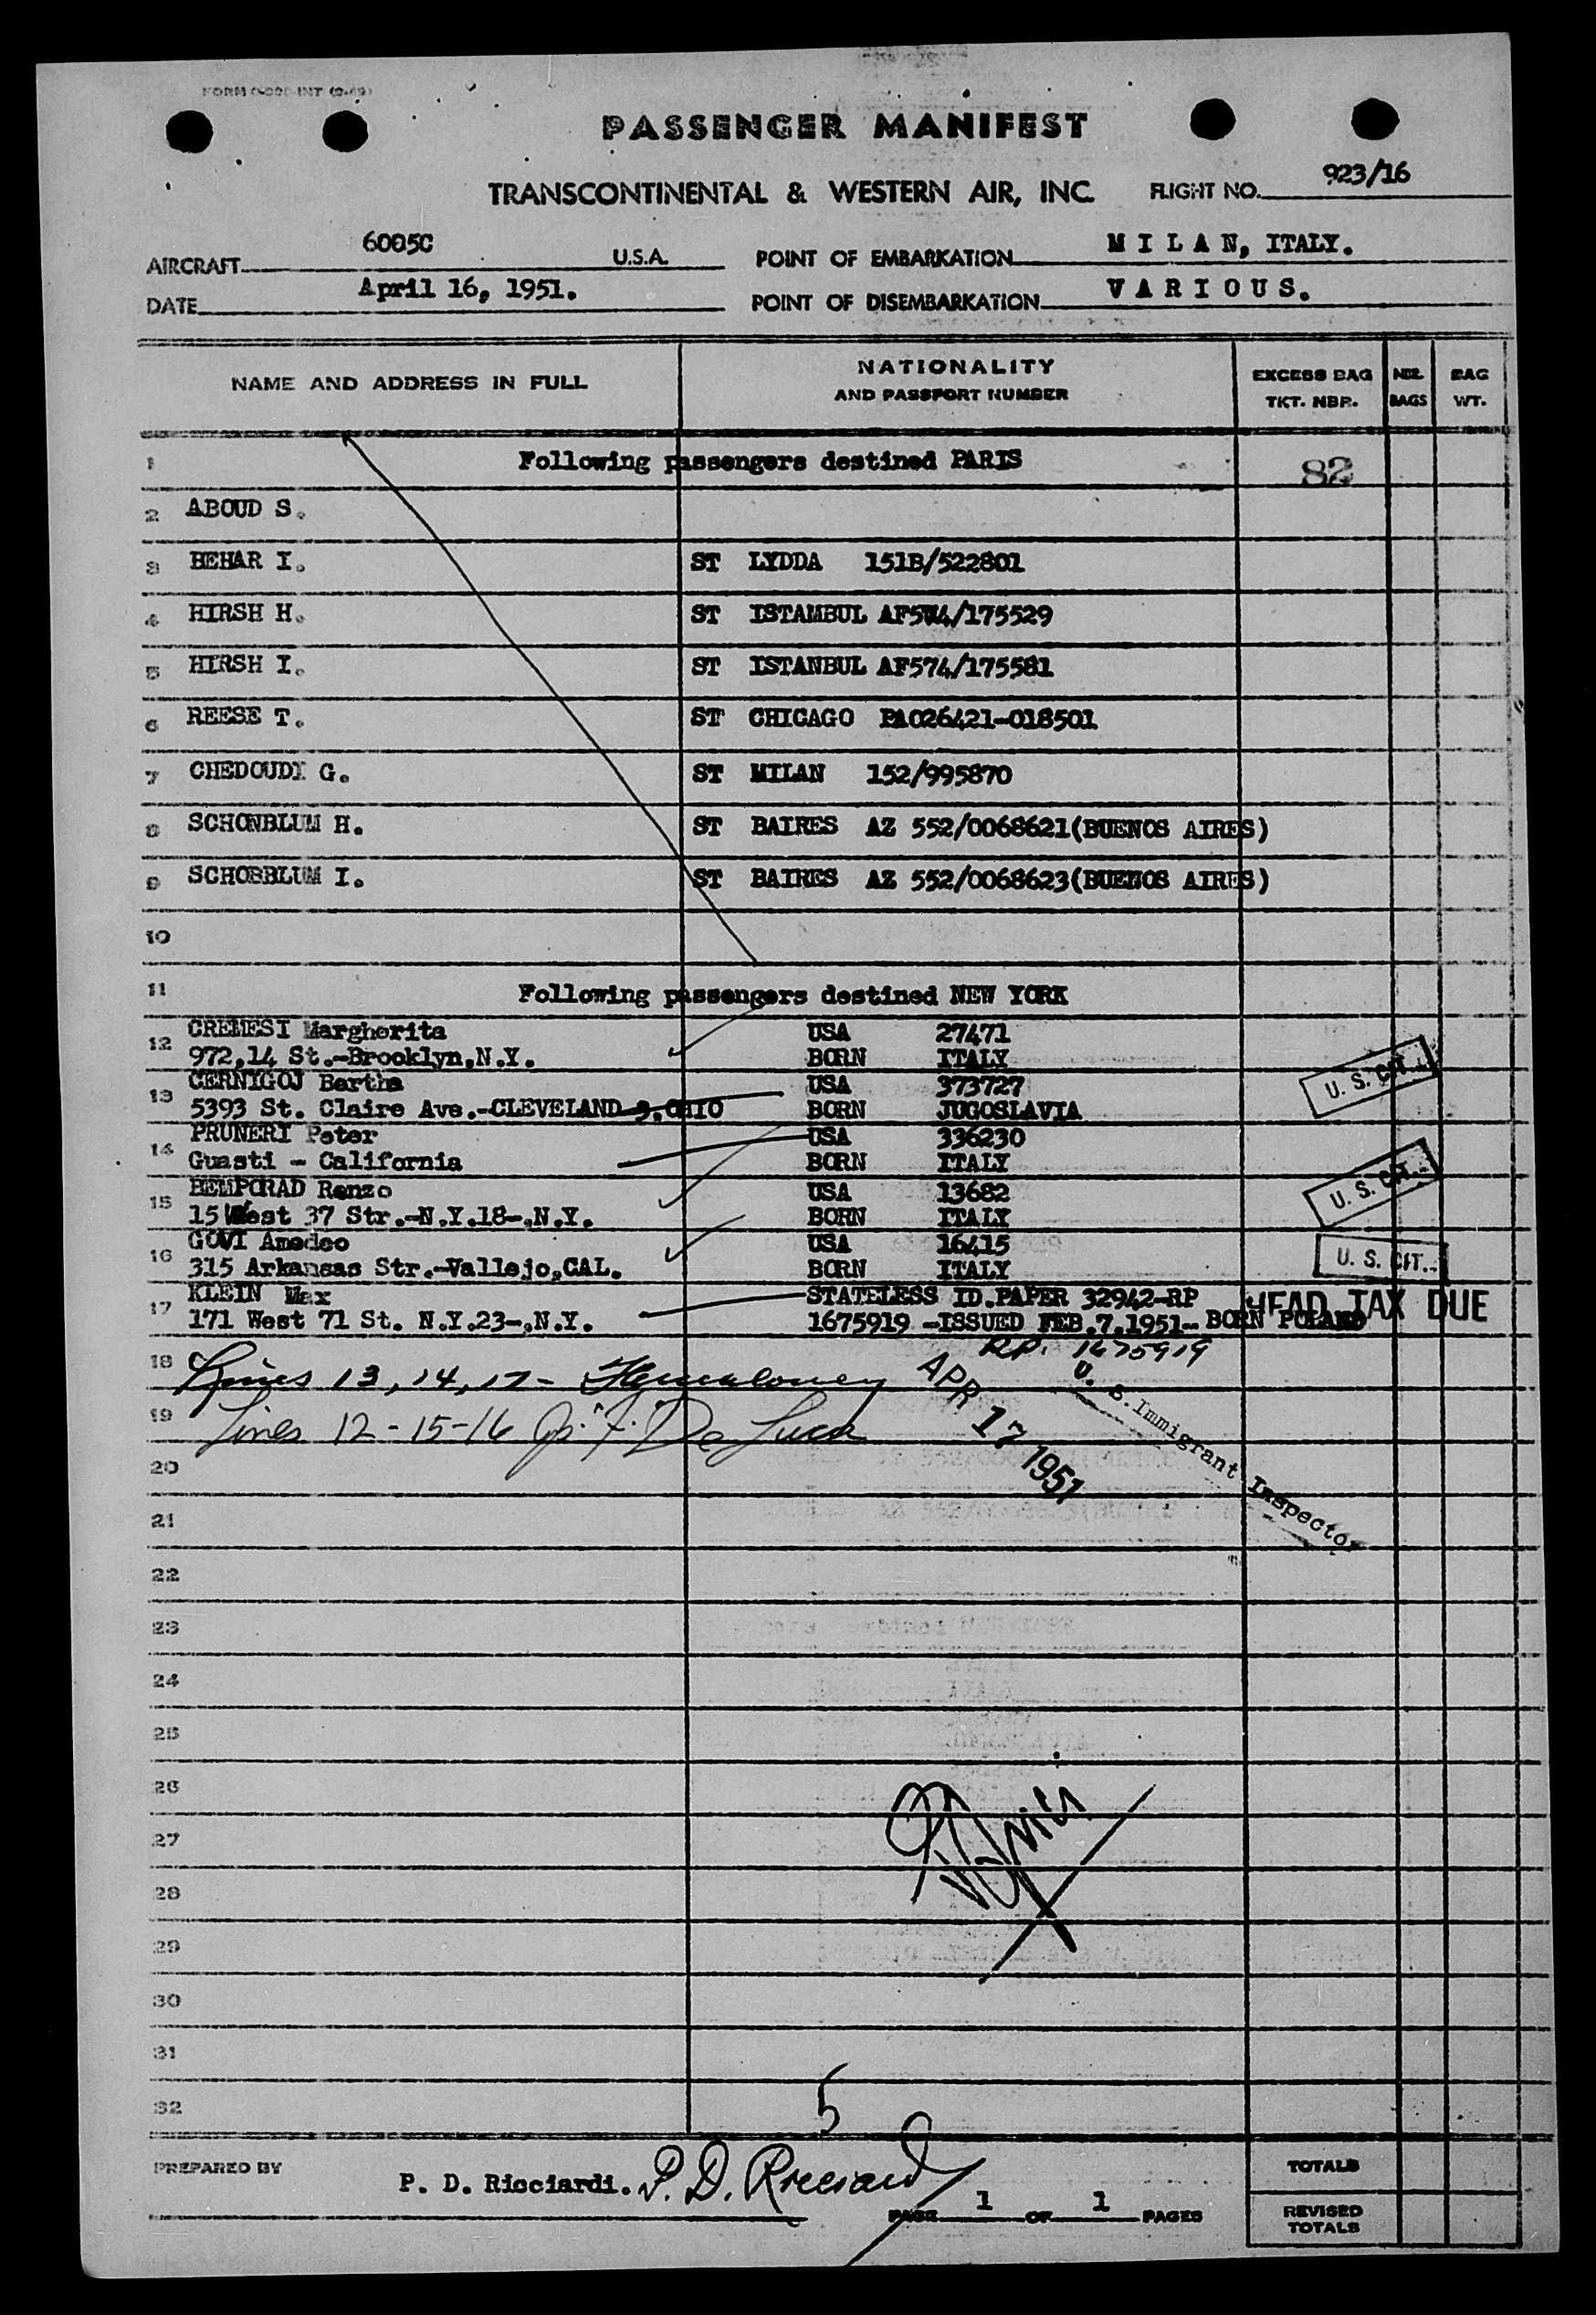 PASSENGER MANIFEST
TRANSCONTINENTAL & WESTERN AIR, INC. FLIGHT NO. 923/16
AIRCRAFT 6005C U.S.A. POINT OF EMBARKATION M I L A N, ITALY.
DATE April 16, 1951. POINT OF DISEMBARKATION V A R I O U S.
NAME AND ADDRESS IN FULL NATIONALITY AND PASSPORT NUMBER EXCESS BAG TKT. NBR. NBR. BAGS BAG WT.
1 Following passengers destined PARIS 82
2 ABOUD S.
3 BEHAR I. ST LYDDA 151B/522801
4 HIRSH H. ST ISTAMBUL /175529
5 HIRSH I. ST ISTANBUL AF574/175581
6 REESE T. ST CHICAGO PA026421-018501
7 CHEDOUDY G. ST MILAN 152/995870
8 SCHONBLUM H. ST BAIRES AZ 552/0068621(BUENOS AIRES)
9 SCHOBBLUM I. ST BAIRES AZ 552/0068623(BUENOS AIRES)
10
11 Following passengers destined NEW YORK
12 CREMESI Margherita USA 27471
972,14 St.-Brooklyn,N.Y. BORN ITALY
U. S. CIT.
13 CERNIGOJ Bertha USA 373727
5393 St. Claire Ave.-CLEVELAND 3,OHIO BORN JUGOSLAVIA
14 PRUNERI Peter USA 336230
Guasti - California BORN ITALY
15 BEMPORAD Renzo USA 13682
15 West 37 Str.-N.Y.18-,N.Y. BORN ITALY
U. S. CIT.
16 GOVI Amedeo USA 16415
315 Arkansas Str.-Vallejo,CAL. BORN ITALY
U. S. CIT.
17 KLEIN Max STATELESS ID.PAPER 32942-RP HEAD TAX DUE
171 West 71 St. N.Y.23-,N.Y. 1675919 -ISSUED FEB.7.1951- BORN POLAND
RP. 1675919
18 Lines 13, 14, 17 -
19 Lines 12 - 15-16 De Luca
APR 17 1951
U. S. Immigrant Inspector
20
21
22
23
24
25
26
27
28
29
30
31
32
5
PREPARED BY P. D. Ricciardi. P. D. Ricciardi TOTALS
PAGE 1 OF 1 PAGES REVISED TOTALS